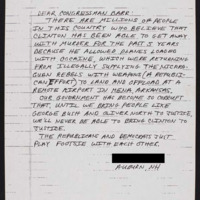 DEAR CONGRESSMAN BARR:
THERE ARE MILLIONS OF PEOPLE
IN THIS COUNTRY WHO BELIEVE THAT
CLINTON HAS BEEN ABLE TO GET AWAY
WITH MURDER FOR THE PAST 5 YEARS
BECAUSE HE ALLOWED PLANES LOADED
WITH COCAINE, WHICH WERE RETURNING
FROM ILLEGALLY SUPPLYING THE NICARA-
GUEN REBELS WITH WEAPONS (A REPUBLI-
CAN EFFORT) TO LAND AND OFFLOAD AT A
REMOTE AIRPORT IN MENA, ARKANSAS.
OUR GOVERNMENT HAS BECOME SO CORRUPT
THAT, UNTIL WE BRING PEOPLE LIKE
GEORGE BUSH AND OLIVER NORTH TO JUSTICE,
WE'LL NEVER BE ABLE TO BRING CLINTON TO
JUSTICE.
THE REPUBLICANS AND DEMOCRATS JUST
PLAY FOOTSIE WITH EACH OTHER.
AUBURN, NH